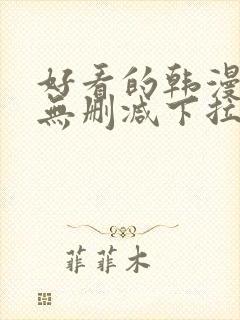 好看的韩漫
無删减下拉
菲菲木